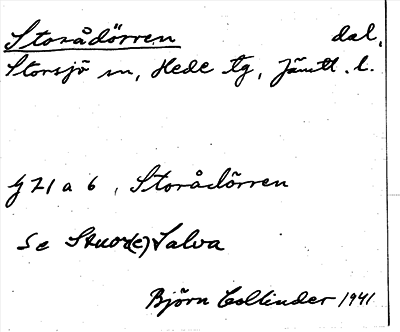 Storådörren dal.
Storsjö sn, Hede tg, Jämtl. l.
g 21 a 6, Storådörren
Se Stuor(e) Salva
Björn Collinder 1941